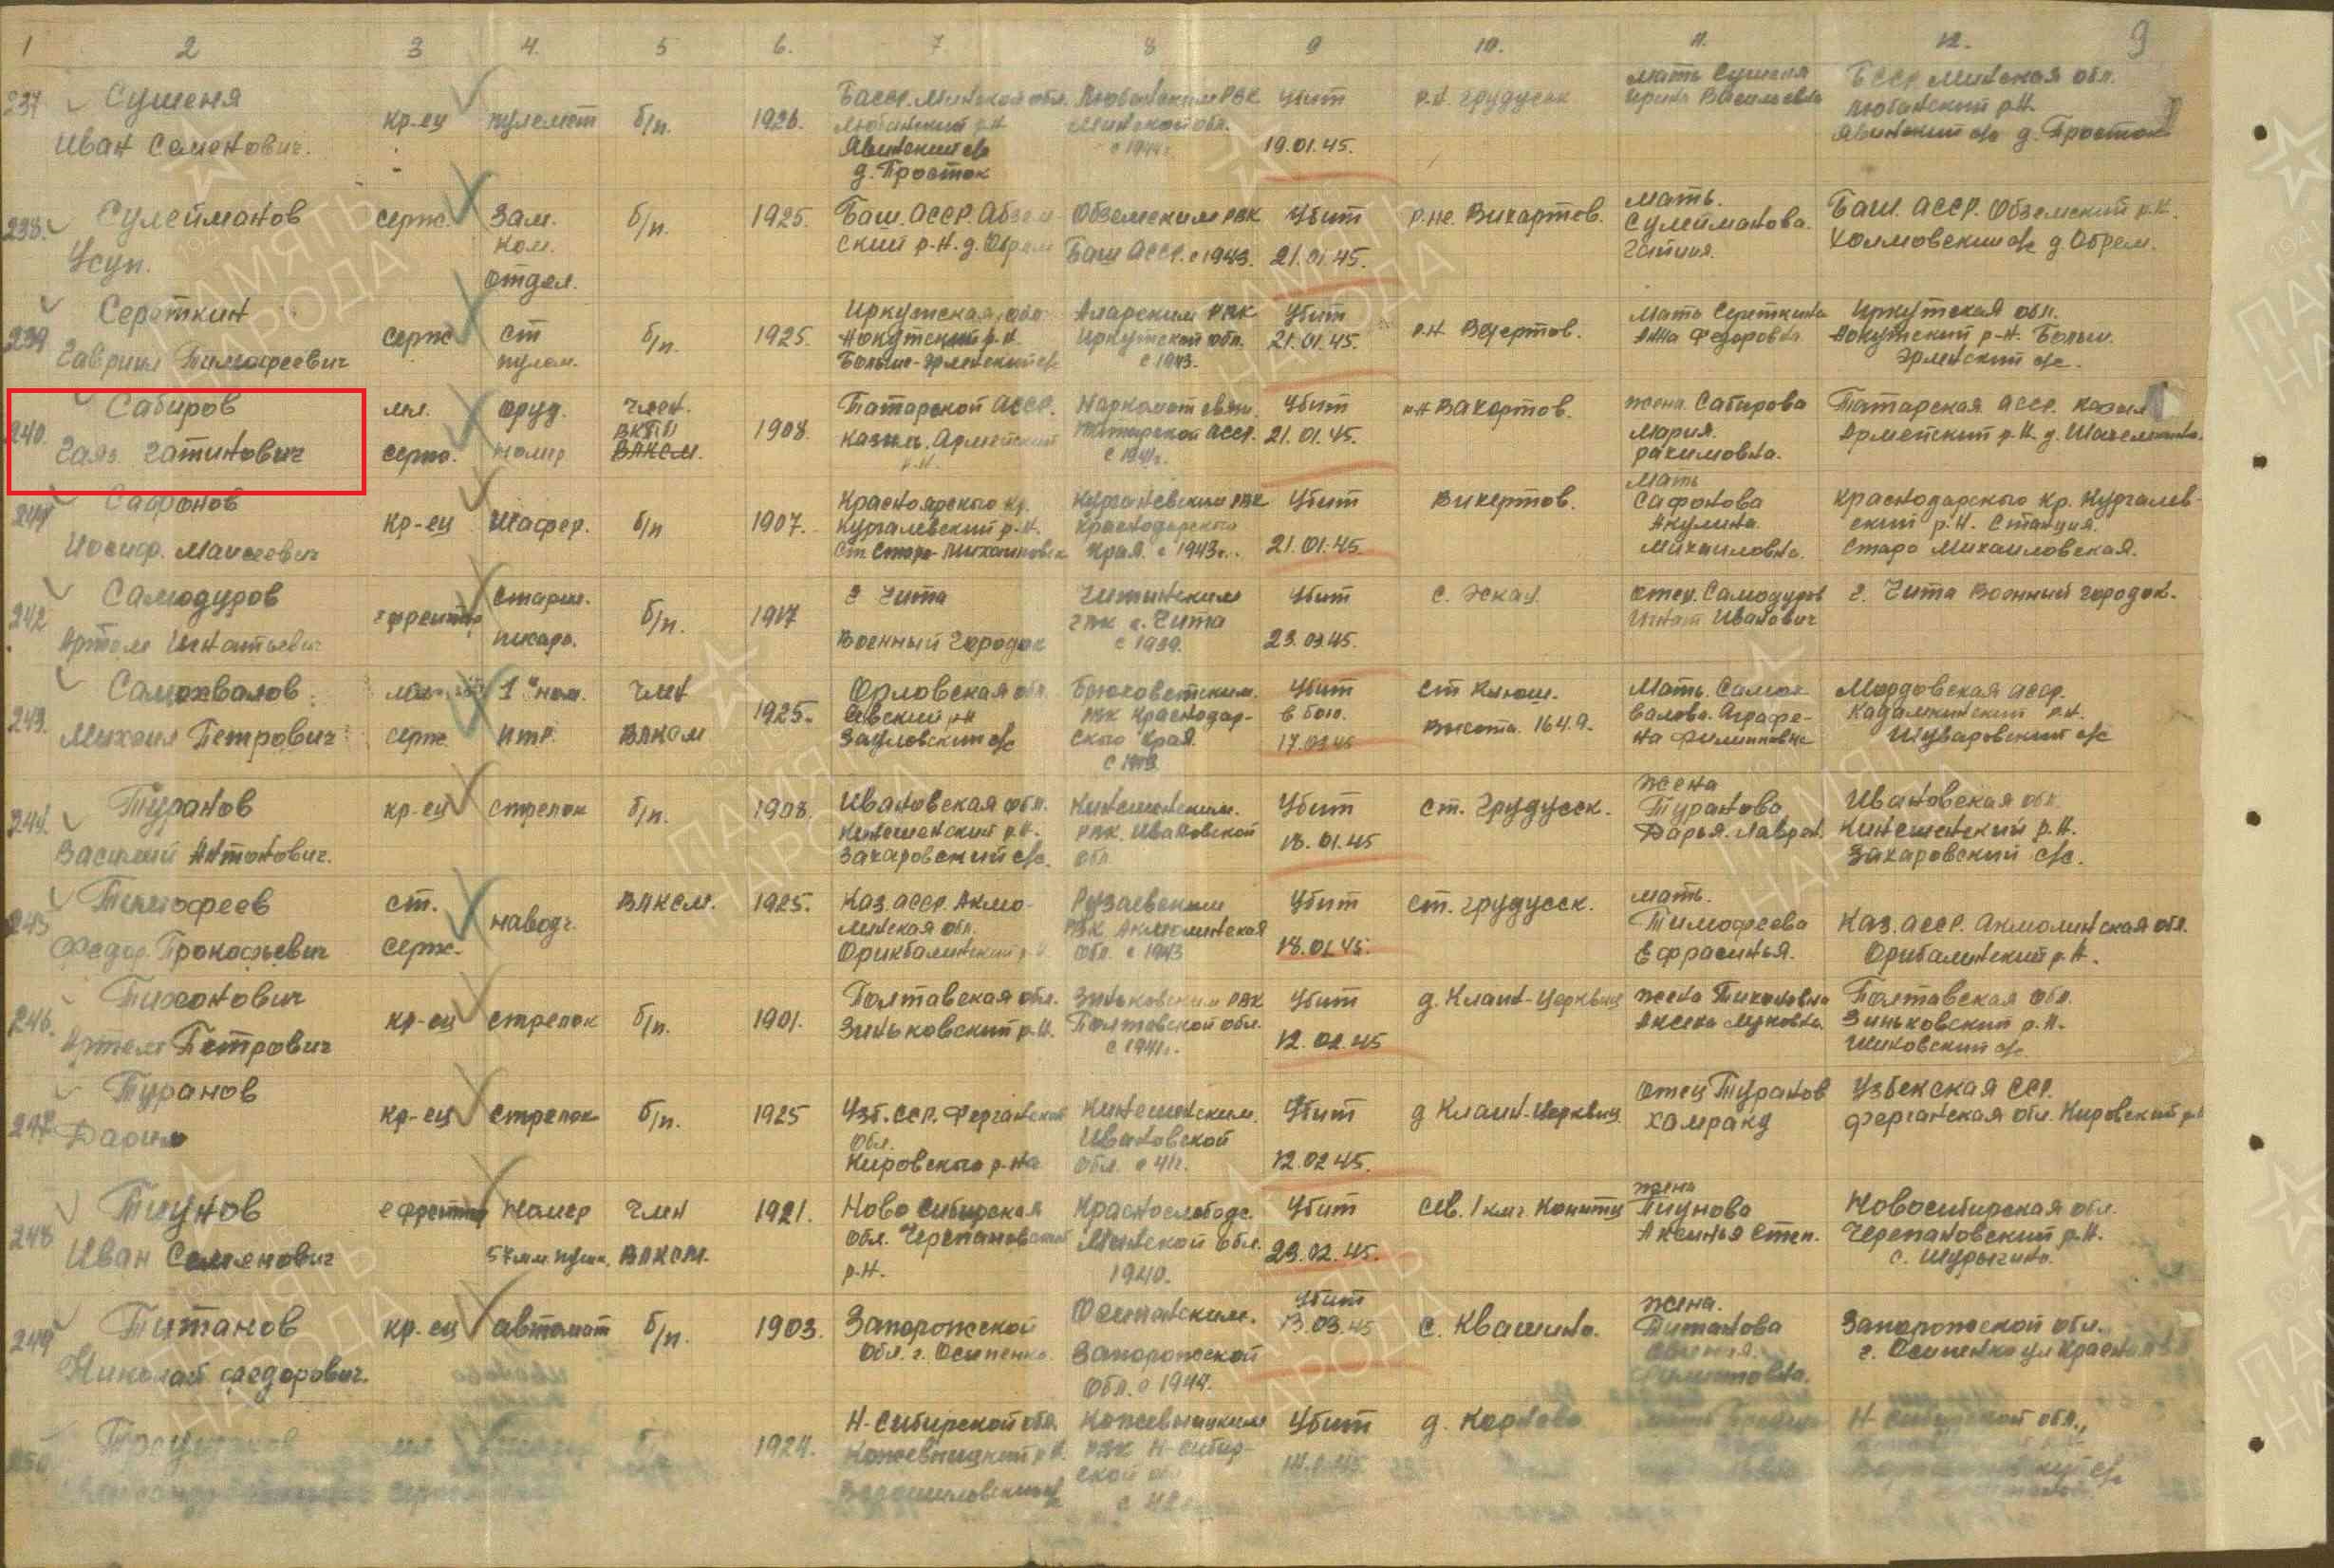 1 2 3 4. 5 6. 7 8 9 10. 11. 12. 9
237 Сушеня
Иван Семенович.
кр-ец
пулемет
б/п.
1926.
Бсср. Минской обл.
Любанский р-н
Явинский с/с
д. Просток
Любанским РВК
Минской обл.
с 1944г.
убит
19.01.45.
р.н. Грудусск
мать Сушеня
Ирина Васильевна
БССР Минская обл.
Любанский р.н.
Явинский с/с д. Просток
238. Сулейманов
Усуп.
серж.
Зам.
ком.
отдел.
б/п.
1925.
Баш. АССР. Абзем-
ский р-н. д. Абрем
Обземским РВК
Баш АССР. с 1943.
Убит
21.01.45.
р.не. Вихартов.
мать.
Сулейманова.
Баш. АССР. Обземский р.н.
Холмовский с/с д. Обрем.
239 Сереткин
Гавриил Тимофеевич
серж
ст
пулем.
б/п.
1925.
Иркутская обл
Нокутский р.н.
Больше-Эрленский с/с
Аларским РВК
Иркутской обл.
с 1943.
Убит
21.01.45.
р.н.
Мать Сереткина
Анна Федоровна.
Иркутская обл.
Нокутский р-н. Больш.
Эрленский с/с.
240. Сабиров
Гаяз Гатинович
мл.
серж.
оруд.
номер
член.
ВКПб
ВЛКСМ.
1908.
Татарской АССР.
Казыл. Армейский
р.н.
Наркомат связи.
Татарской АССР.
с 1941г.
Убит
21.01.45.
р.н Вихертов.
жена. Сабирова
Мария.
Рахимовна.
Татарская АССР. Казыл
Арметский р.н. д.
241 Сафонов
Иосиф. Моисеевич
кр-ец
Шафер.
б/п
1907.
Красноярского кр.
Кургалевский р-н.
ст Старо-Михайловск
Курганевским РВК
Краснодарского
Края. с 1943г..
Убит
21.01.45.
Вихертов.
Мать
Сафонова
Акулина.
Михаиловна.
Краснодарского Кр. Кургалев-
ский р.н. Станция.
Старо Михаиловская.
242 Самодуров
Артем Игнатьевич
ефрейтор
старш.
писарь.
б/п.
1917
г Чита
Военный городок
Читинским
ГВК г. Чита
с 1939.
Убит
23.03.45.
с. Эскау.
отец. Самодуров
Игнат Иванович
г. Чита Военный городок.
243. Самохвалов.
Михаил Петрович
мл
серж.
1й ном.
ПТР.
Член
ВЛКСМ
1925.
Орловская обл
р-н
с/с
РВК Краснодар-
ского края.
с 1943
Убит
в бою.
17.03.45
ст Клюш.
Высота. 164.9.
Мать. Самох-
валова. Аграфе-
на Филипповна
Мордовская АССР.
р.н.
Шуваровский с/с
244. Туранов
Василий Антонович.
кр-ец
стрелок
б/п.
1908.
Ивановская обл.
Кинешенский р.н.
Захаровский с/с.
Кинешенским.
РВК. Ивановской
обл.
Убит
18.01.45
ст. Грудусск.
жена
Туранова
Дарья. Лаврен.
Ивановская обл.
Кинешенский р.н.
Захаровский с/с.
245 Тимофеев
Федор. Прокофьевич
ст.
серж.
наводч.
ВЛКСМ.
1925.
Каз. АССР. Акмо-
линская обл.
Рузаевским
РВК Акмолинская
обл. с 1943
Убит
18.01.45.
ст. Грудусск.
мать.
Тимофеева
Ефрасинья.
Каз. АССР. Акмолинская обл.
Орибалинский р.н.
246. Тихонович
Артем Петрович
кр-ец
стрелок
б/п.
1901.
Полтавская обл.
Зиньковский р.н.
Зиньковским РВК
Полтовской обл.
с 1941г.
Убит
12.02.45
д. Кланн-Церквиц
жена Тихоновна
Полтавская обл.
Зиньковский р.н.
с/с
247. Туранов
кр-ец
стрелок
б/п.
1925
Узб. ССР. Ферганской
обл.
Кировского р-на
Кинешенским.
Ивановской
обл.
Убит
12.02.45.
д Кланн-Церквиц.
отец Туранов
Узбекская ССР.
Ферганская обл. Кировский р-н
248 Тиунов
Иван Семенович
ефрейтор
номер
57мм. пушк.
Член
ВЛКСМ.
1921.
Ново Сибирская
обл. Черепановский
р.н.
Краснослободс.
Минской обл.
1940.
Убит
23.02.45.
сев. 1 км г. Конитц
жена
Тиунова
Аксинья Степ.
Новосибирская обл.
Черепановский р.н.
с. Шурыгино.
249 Титанов
Николай Федорович.
кр. ец
автомат
б/п.
1903.
Запорожской
обл. г. Осипенко.
Осипенским.
Запорожской
обл. с 1944.
Убит
13.03.45
с. Квашино.
жена.
Титанова
Запорожской обл.
г. Осипенко ул Красная
250
1924.
Н-Сибирской обл.
Кожевницкий р.н.
Ворошиловский с/с
Кожевницким
РВК Н-Сибир-
ской обл
с 42г.
Убит
д.
Н-Сибирской обл.,
ПАМЯТЬ
НАРОДА